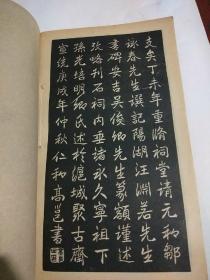 支矣丁未年重脩祠堂請元和鄒
詠春先生譔記陽湖汪淵若先生
書碑安吉吳俊卿先生篆額謹述
攷略刊石祠内垂諸永久寧祖下
孫光培明氏述於滬城聚古齋
宣統庚戌年仲秋仁和高邕書